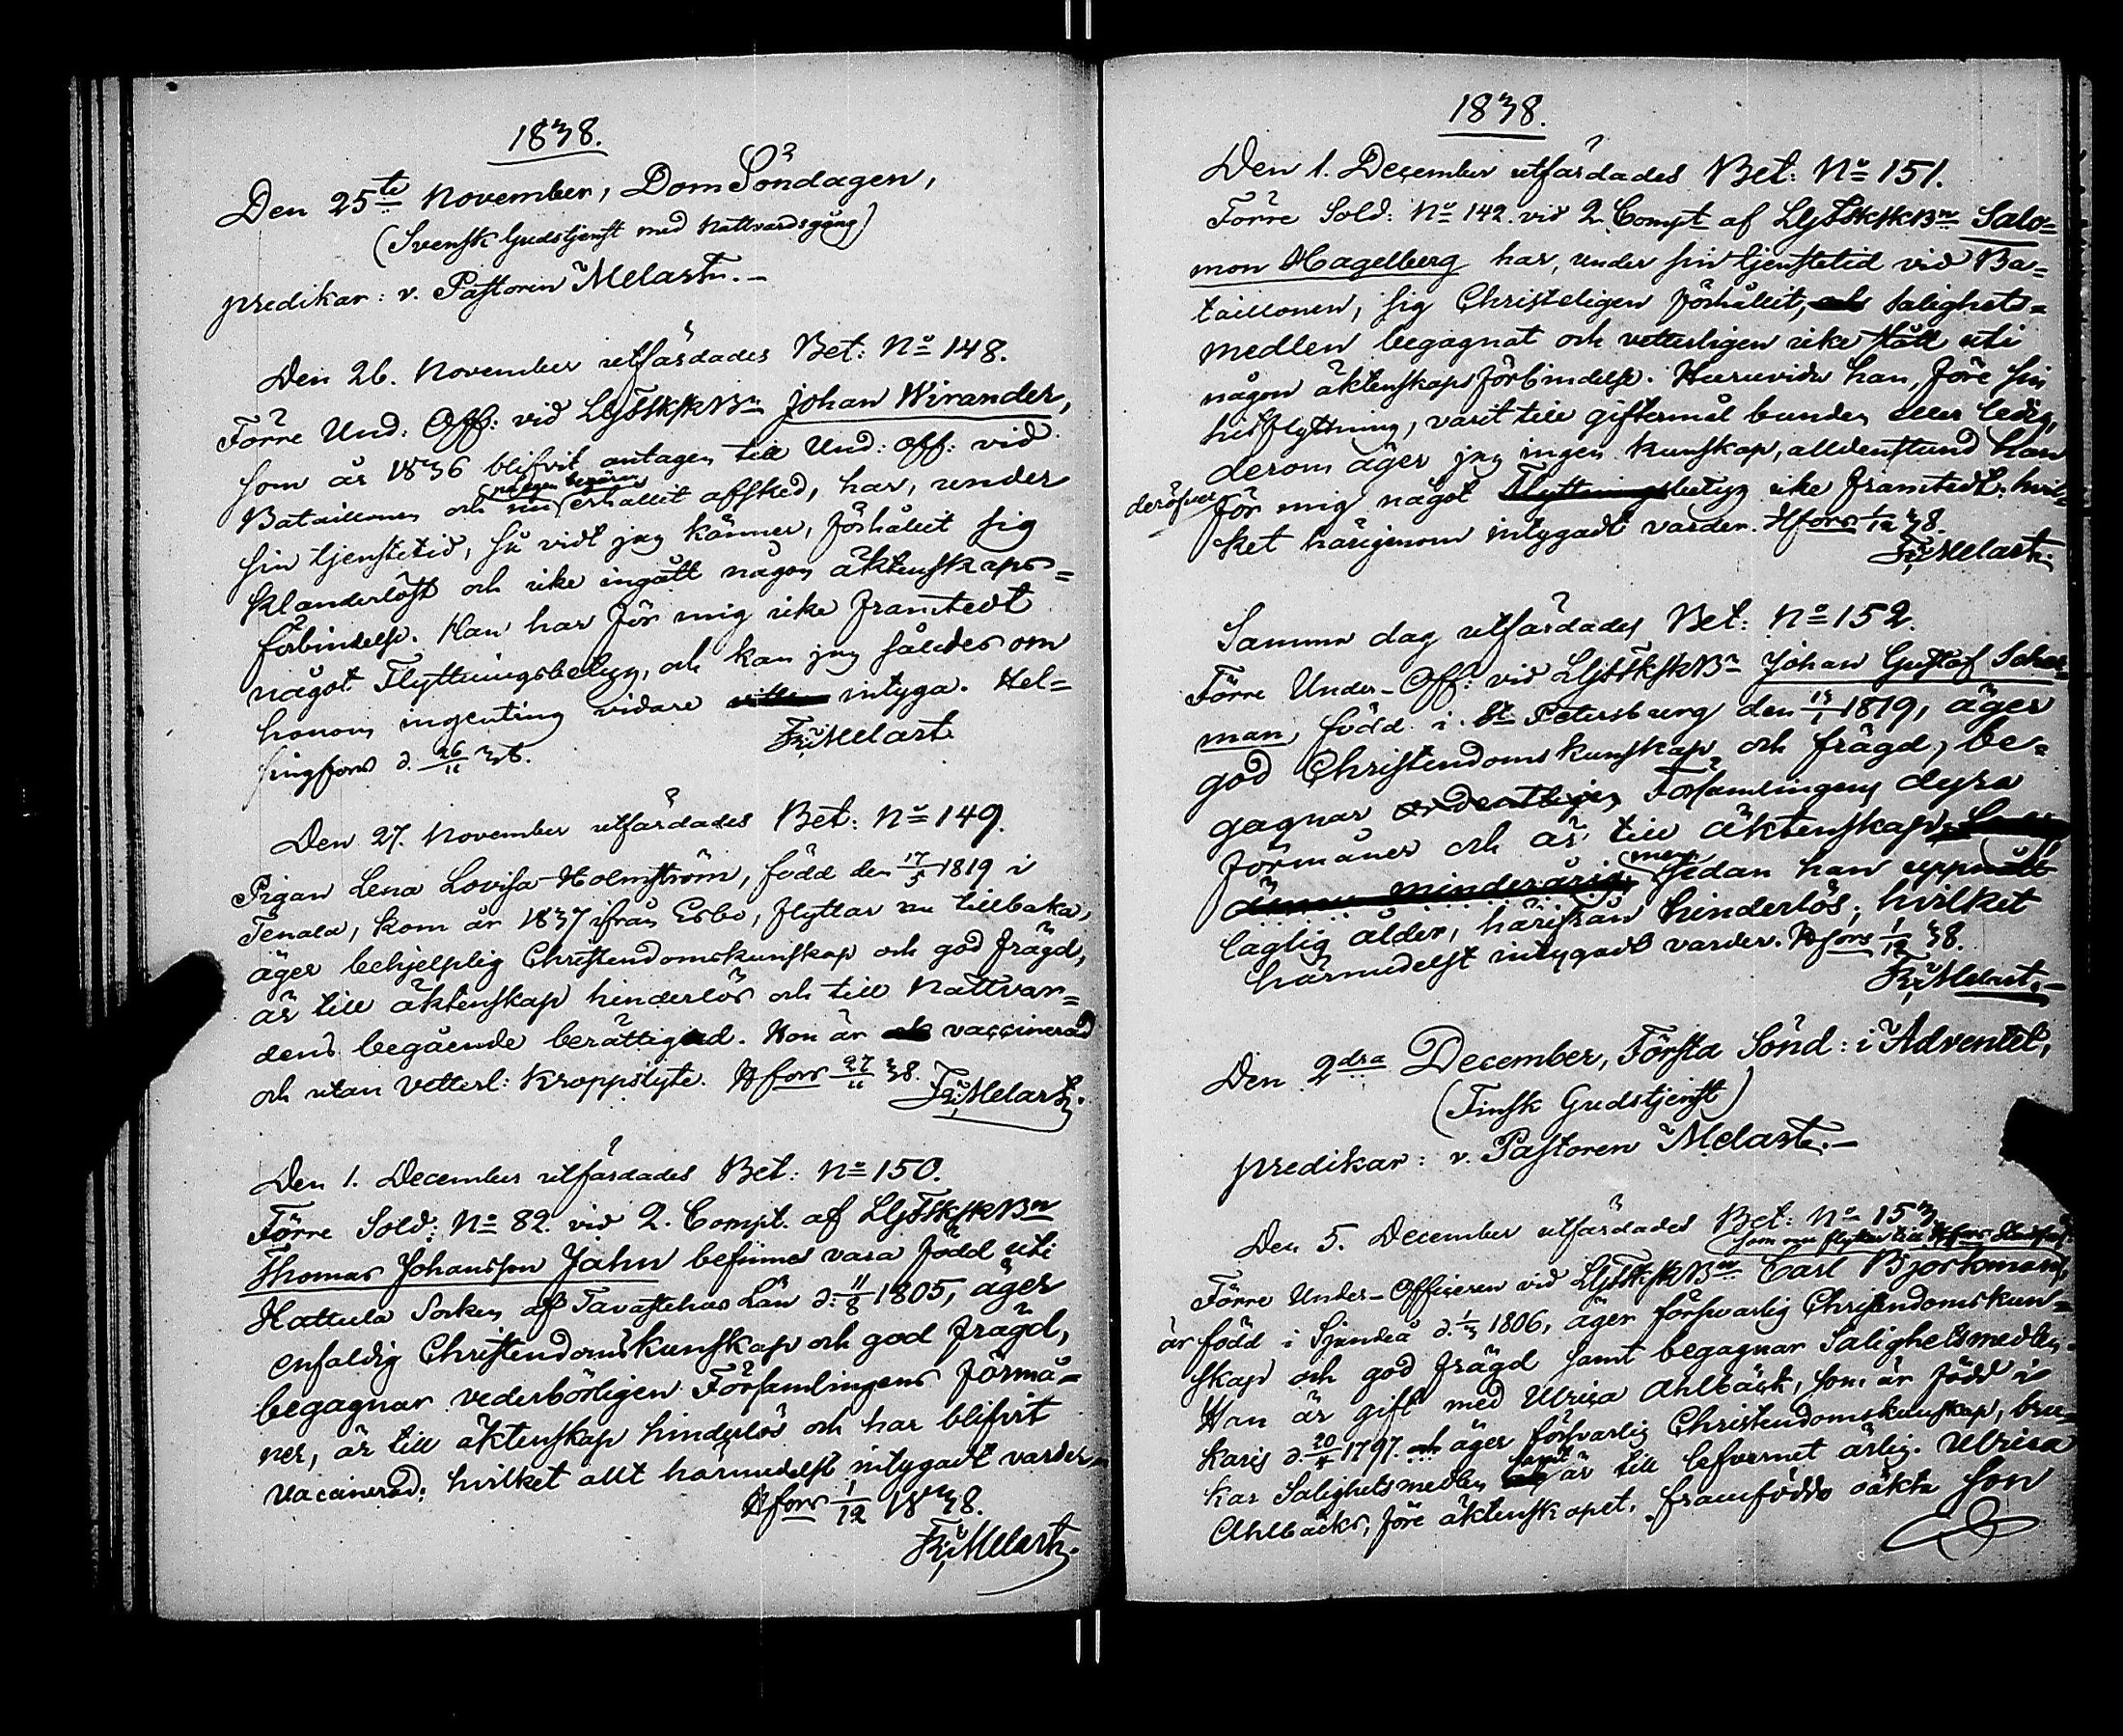 1838.
Den 25te November, DomSöndagen,
(Svensk Gudstjenst med Nattvardsgång)
predikar: v. Pastoren Melart. –
Den 26. November utfärdades Bet: No 148.
Förre Und: Off: vid Johan Wirander,
som år 1836 blifvit antagen till Und: Off: vid
på egen begäran
Bataillonen och nu erhållit afsked, har, under
sin tjenstetid, så vidt jag känner, förhållit sig
klanderlöst och icke ingått någon äktenskaps=
förbindelse. Han har för mig icke framtedt
något Flyttningsbetyg, och kan jag således om
honom ingenting vidare intyga. Hel=
singfors d. 26/11 38.
Fr: Melart
Den 27. November utfärdades Bet: No 149.
Pigan Lena Lovisa Holmström, född den 17/5 1819 i
Tenala, kom år 1837 ifrån Esbo, flyttar nu tillbaka,
äger behjelplig Christendomskunskap och god frägd,
är till äktenskap hinderlös och till Nattvar=
dens begående berättigad. Hon är vaccinerad
och utan vetterl: kroppslyte. Hfors 27/11 38.
Fr: Melart.
Den 1. December utfärdades Bet: No 150.
Förre Sold: No 82 vid 2. Compt. af
Thomas Johansson Jahn befinnes vara född uti
Hattula Socken af Tavastehus Län d: 11/8 1805, äger
enfaldig Christendomskunskap och god frägd,
begagnar vederbörligen Församlingens förmå=
ner, är till äktenskap hinderlös och har blifvit
vaccinerad; hvilket allt härmedelst intygadt varder.
Hfors 1/12 1838.
Fr: Melart.
1838.
Den 1. December utfärdades Bet: No 151.
Förre Sold: No 142 vid 2 Compt af Salo=
mon Hagelberg har, under sin tjenstetid vid Ba=
taillonen, sig Christeligen förhållit, salighets=
medlen begagnat och vetterligen icke stått uti
någon äktenskapsförbindelse. Huruvida han, före sin
hitflyttning, varit till giftermål bunden eller ledig,
derom äger jag ingen kunskap, alldenstund han
deröfver för mig något Flyttningsbetyg icke framtedt; hvil=
ket härigenom intygadt varder. Hfors 1/12 38.
Fr: Melart.
Samma dag utfärdades Bet: No 152.
Förre Under-Off: vid Johan Gustaf
man, född i St Petersburg den 1819, äger
god Christendomskunskap och frägd, be=
gagnar ordentligen Församlingens dyra
förmåner och är till äktenskap,
ännu minderårig, men sedan han uppnått
laglig ålder, härifrån hinderlös; hvilket
härmedelst intygadt varder. Hfors 1/12 38.
Fr: Melart. –
Den 2dra December, Första Sönd: i Adventet,
(Finsk Gudstjenst)
predikar: v. Pastoren Melart. –
Den 5. December utfärdades Bet: No 153
som nu flyttar till Hfors
Förre Under-Officeren vid Carl Björkman,
är född i Sjundeå d. 1/3 1806, äger försvarlig Christendomskun=
skap och god frägd samt begagnar Salighetsmedlen.
Han är gift med Ulrica Ahlbäck, som är född i
Karis d 1797. och äger försvarlig Christendomskunskap, bru=
kar Salighetsmedlen samt är till lefvernet ärlig. Ulrica
Ahlbäcks, före äktenskapet, framfödde oäkta son